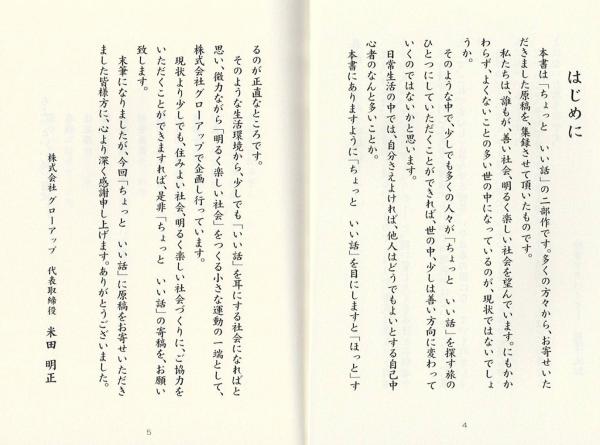 はじめに
本書は「ちょっと　いい話」の二部作です。多くの方々から、お寄せいた
だきました原稿を、集録させて頂いたものです。
私たちは、誰もが、善い社会、明るく楽しい社会を望んでいます。にもかか
わらず、よくないことの多い世の中になっているのが、現状ではないでしょ
うか。
そのような中で、少しでも多くの人々が「ちょっと　いい話」を探す旅の
ひとつにしていただくことができれば、世の中、少しは善い方向に変わって
いくのではないかと思います。
日常生活の中では、自分さえよければ、他人はどうでもよいとする自己中
心者のなんと多いことか。
本書にありますように「ちょっと　いい話」を目にしますと「ほっと」す
4
るのが正直なところです。
そのような生活環境から、少しでも「いい話」を耳にする社会になればと
思い、微力ながら「明るく楽しい社会」をつくる小さな運動の一端として、
株式会社グローアップで企画し行っています。
現状より少しでも、住みよい社会、明るく楽しい社会づくりに、ご協力を
いただくことができますれば、是非「ちょっと　いい話」の寄稿を、お願い
致します。
末筆になりましたが、今回「ちょっと　いい話」に原稿をお寄せいただき
ました皆様方に、心より深く感謝申し上げます。ありがとうございました。
株式会社 グローアップ　代表取締役　米田 明正
5